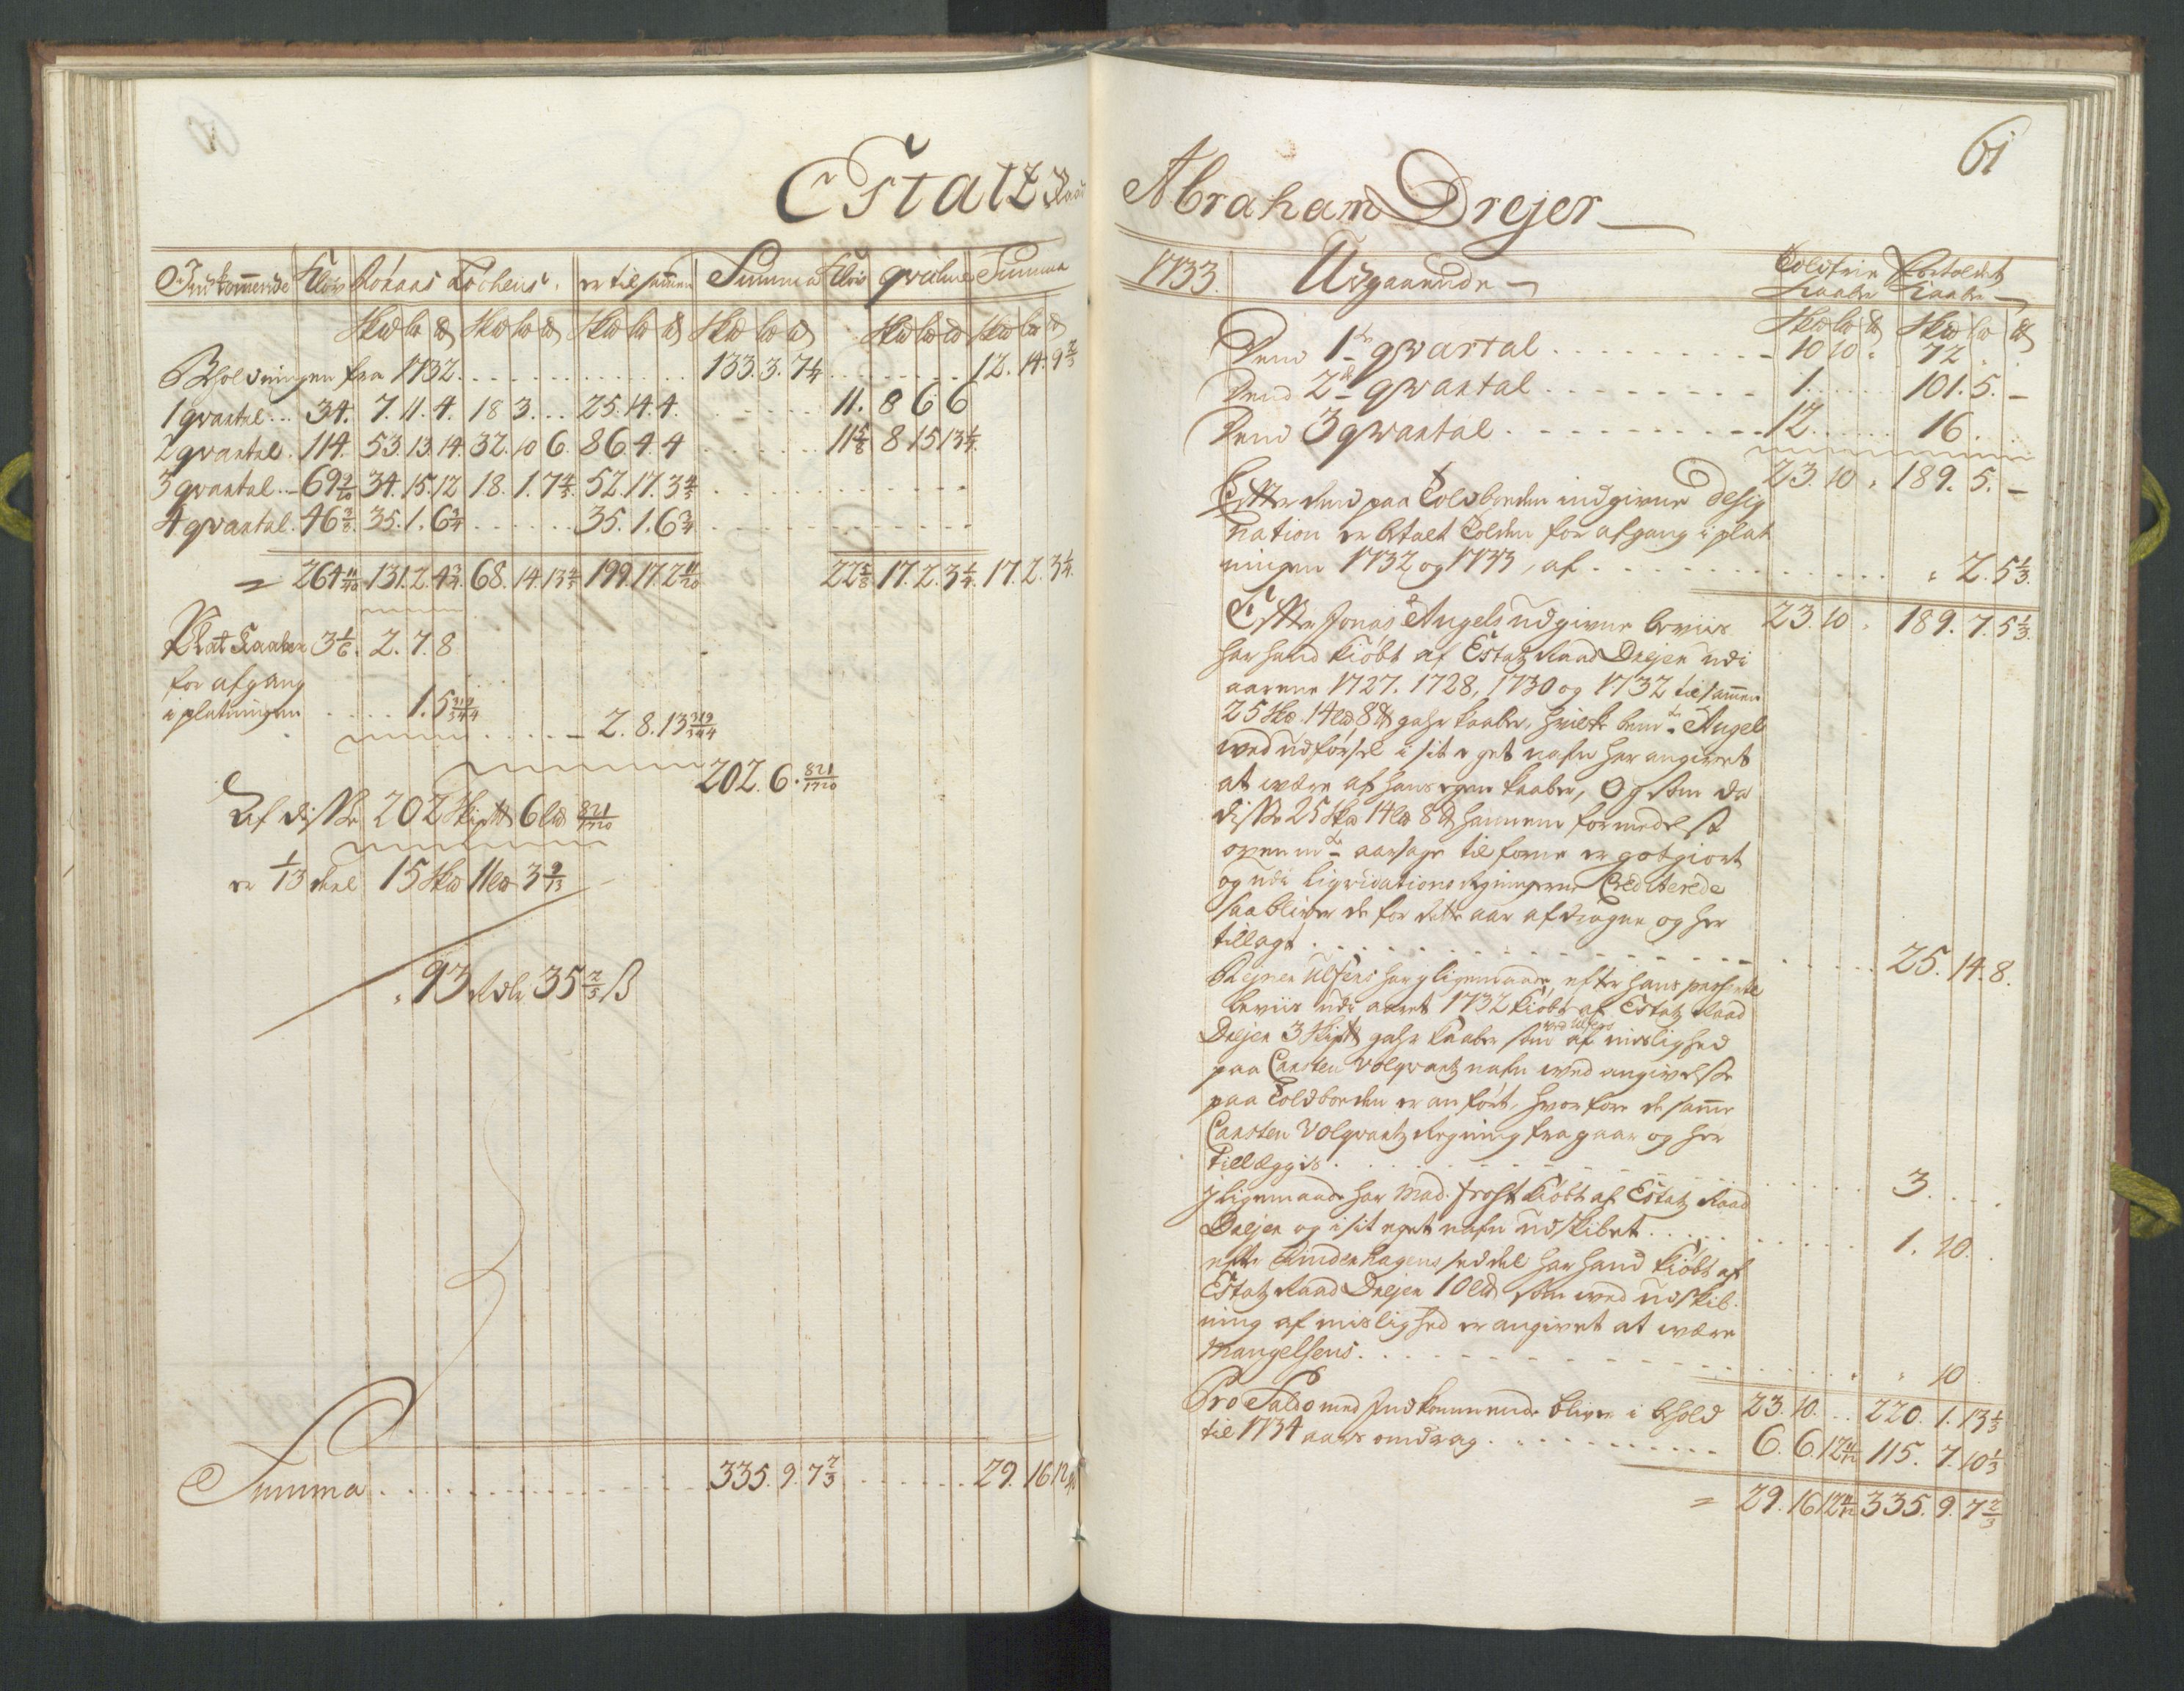 Estatz Raad
Indkommende Kløv Røraas Løckens er tilsammen Summa Kløv qvalne Summa
Sk℔ l℔ ℔ Sk℔ l℔ ℔ Sk℔ l℔ ℔ Sk℔ l℔ ℔ Sk℔ l℔ ℔ Sk℔ l℔ ℔
Beholdningen fra 1732 133. 3. 7 1/4 12. 14. 9 2/3
1 qvartal 34. 7. 11. 4. 18 3. 25. 14. 4. 11. 8 6 6
2 qvartal 114. 53. 13. 14. 32. 10 6. 86. 4. 4 11 5/8 8 15 13 1/4
3 qvartal 69 9/10 34. 15. 12 18. 1. 7 4/5. 52. 17. 3 4/5
4 qvartal 46 3/8. 35. 1. 6 3/4 35. 1. 6 3/4
= 264 11/40 131. 2. 4 3/4. 68. 14. 13 4/5 199. 17. 2 11/20 22 5/8 17. 2. 3 1/4. 17. 2. 3 1/4.
Plat Kaaber 3 1/6. 2. 7. 8
for afgang
i platningen 1. 5 319/344
2. 8. 13 319/344
202. 6. 821/1720
Af disse 202 Skip℔ 6 l℔ 821/1720
er 1/13 deel 15 Sk℔ 11 l℔ 3 9/13
93 Rdlr 35 2/5 ß
Summa 335. 9. 7 2/3 29. 16 12
61
Abraham Drejer
1733. Udgaaende Toldfrie Fortoldet
Kaaber Kaaber
Sk℔ l℔ ℔ Sk℔ l℔ ℔
Dend 1te qvartal 10 10. 72
Dend 2de qvartal 1. 101. 5.
Dend 3 qvartal 12 16
23. 10. 189. 5.
Efter dend paa Toldboeden indgivne Desig
nation er betalt Tolden for afgang i plat
ningen 1732 og 1733, af 2. 5 1/3.
23. 10. 189. 7. 5 1/3
Efter Jonas Angels udgivne beviis
har hand kiøbt af Estatz Raad Drejer udi
aarene 1727. 1728, 1730 og 1732 tilsammen
25 Sk℔. 14 l℔ 8 ℔ gahr kaaber, hvilke bem.te Angel
wed udførsel i sit eget nafn har angivet
at wære af hans egne kaaber, Og som da
disse 25 Sk℔ 14 l℔ 8 ℔ hannem formedelst
ovenm.te aarsage til forne er gotgiort
og udi liqvidations Regningerne Crediterede
saa bliver de for dette aar afdragne og her
tillagt 25. 14. 8.
Rejner Ulfsens har j ligemaade, efter hans
beviis udi aaret 1732 kiøbt af Estatz Raad
Drejer 3 Skip℔ gahr kaaber som wed Ulfens af mislighed
paa Carsten Volqvartz nafn wed angivelse
paa Toldboeden er anført, hvorfore de samme
Carsten Volqvartz Regning fragaar og her
tillæggis 3.
J ligemaade har Mad. Frost kiøbt af Estatz Raad
Drejer og i sit eget nafn udskibet 1. 10.
efter Lindenhagens seddel har hand kiøbt af
Estatz Raad Drejer 10 l℔ som wed udskib
ning af mislighed er angivet at wære
Mangelsens 10
23. 10. 220. 1. 13 1/3
Pro Saldo med Indkommende bliver i behold
til 1734 aars omdrag 6. 6. 12 11/12 115. 7. 10 1/3
= 29. 16 12 11/12 335. 9. 7 2/3